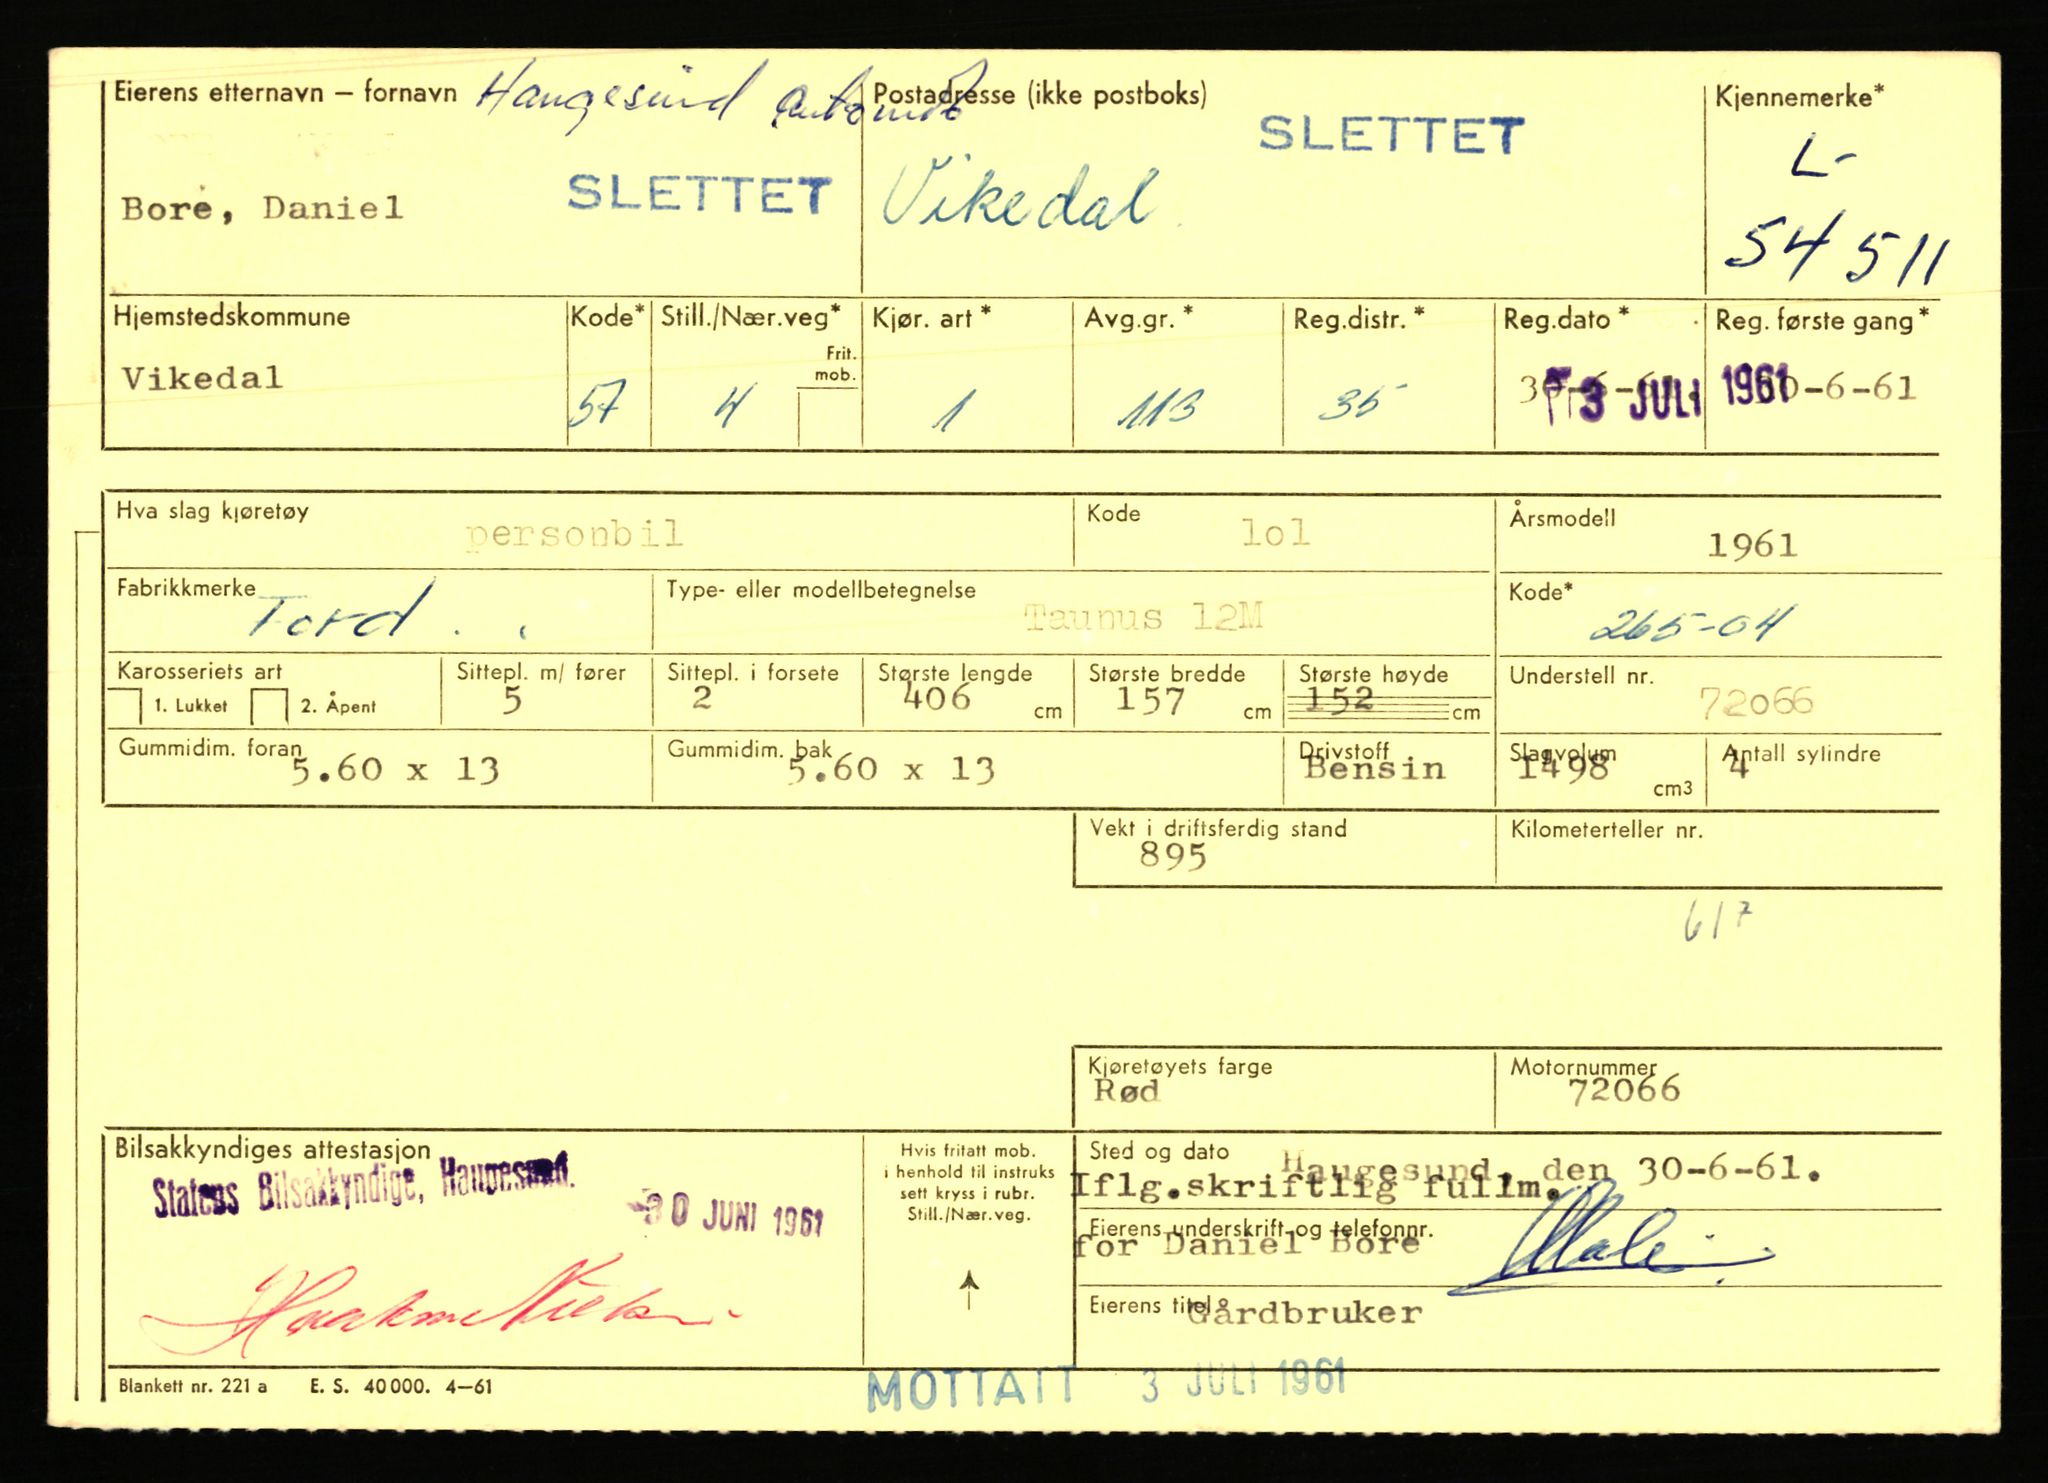 Eierens etternavn – fornavn Haugesund
Bore, Daniel
SLETTET
Postadresse (ikke postboks)
SLETTET
Vikedal
Kjennemerke*
L-
54 511
Hjemstedskommune
Vikedal
Kode*
57
Still./Nær.veg*
Frit.
mob.
4
Kjør. art *
1
Avg.gr. *
113
Reg.distr. *
35
Reg.dato *
3 JULI 1961
Reg. første gang*
30-6-61
Hva slag kjøretøy
personbil
Kode
lol
Årsmodell
1961
Fabrikkmerke
Ford
Type- eller modellbetegnelse
Taunus 12M
Kode*
265-04
Karosseriets art
1. Lukket 2. Åpent
Sittepl. m/ fører
5
Sittepl. i forsete
2
Største lengde
406 cm
Største bredde
157 cm
Største høyde
152 cm
Understell nr.
72066
Gummidim. foran
5.60 x 13
Gummidim. bak
5.60 x 13
Drivstoff
Bensin
Slagvolum
1498 cm3
Antall sylindre
4
Vekt i driftsferdig stand
895
Kilometerteller nr.
617
Kjøretøyets farge
Rød
Motornummer
72066
Bilsakkyndiges attestasjon
Statens Bilsakkyndige, Haugesund.
30 JUNI 1961
Hvis fritatt mob.
i henhold til instruks
sett kryss i rubr.
Still./Nær.veg.
Sted og dato
Haugesund, den 30-6-61.
Iflg.skriftlig fullm.
Eierens underskrift og telefonnr.
for Daniel Bore
Eierens titel
Gårdbruker
Blankett nr. 221 a E. S. 40 000. 4–61
MOTTATT 3 JULI 1961